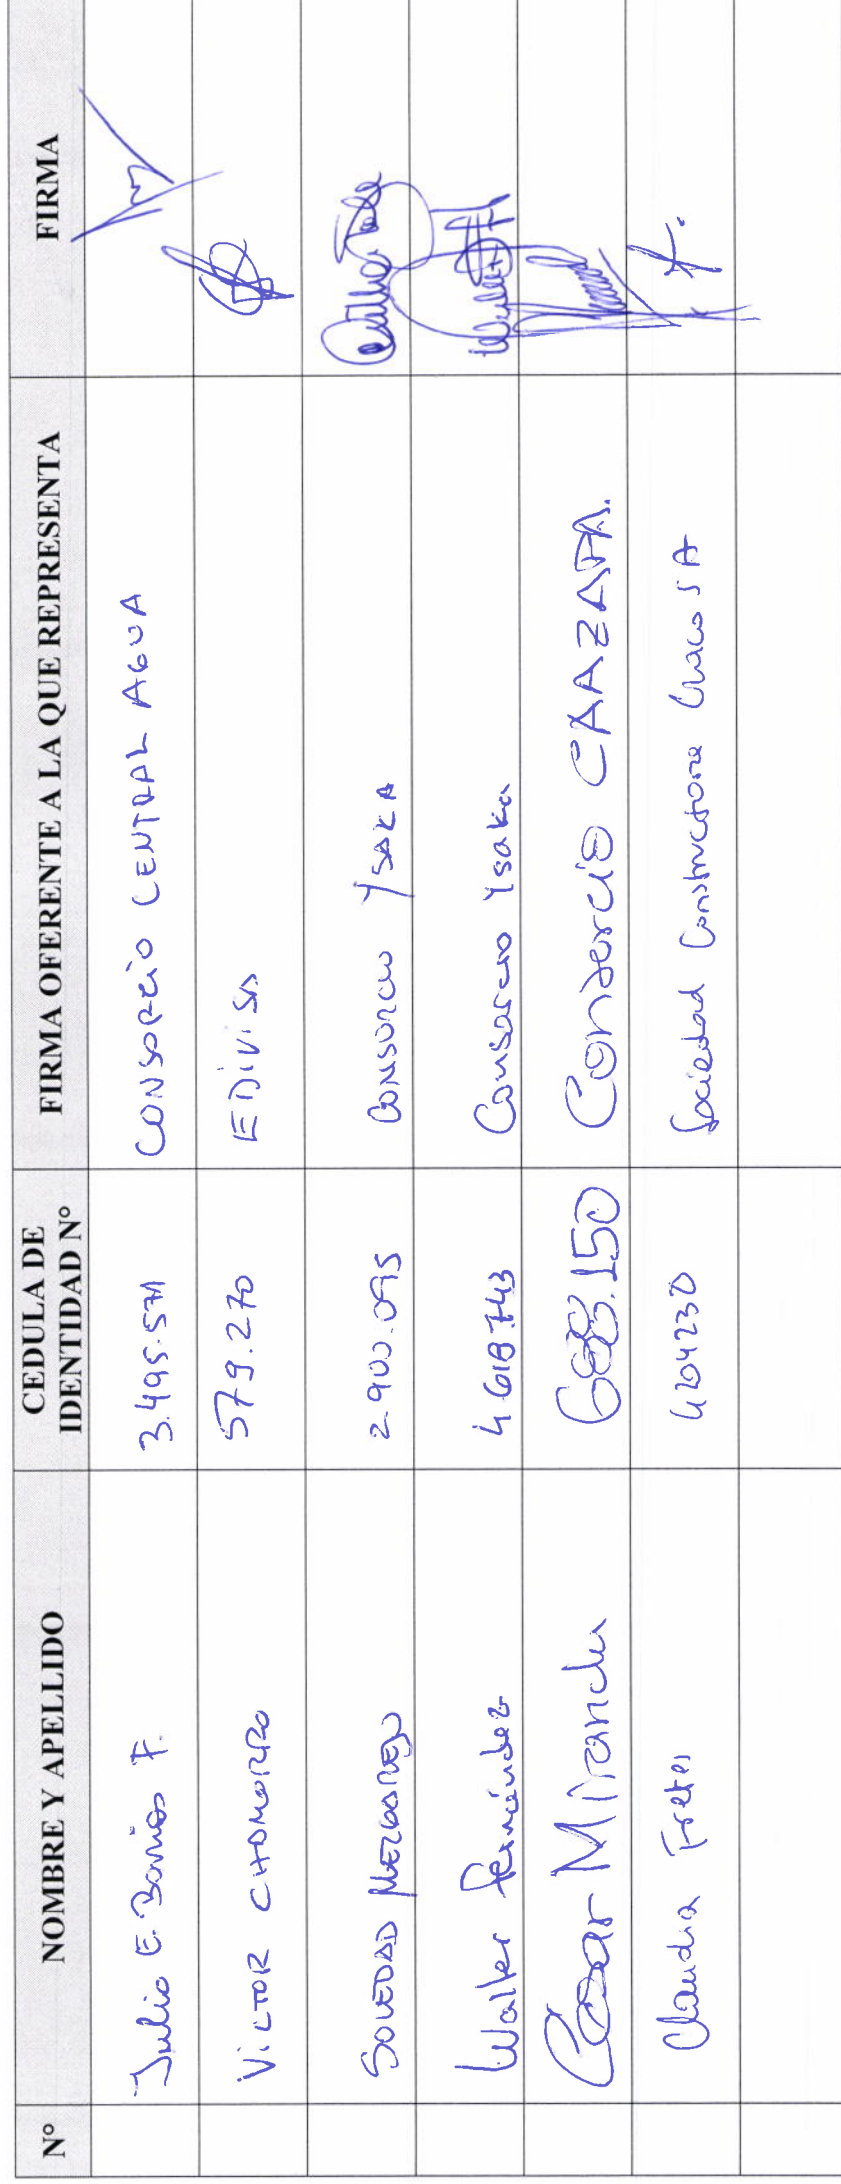 N° NOMBRE Y APELLIDO CEDULA DE IDENTIDAD N° FIRMA OFERENTE A LA QUE REPRESENTA FIRMA
Julio E. Barrios F. 3.495.571 CONSORCIO CENTRAL AGUA
VICTOR CHOMORRO 579.270 EDIVI SA
SOLEDAD MELGAREJO 2.900.095 CONSORCIO YSAKA
Walter Fernández 4618.743 Consorcio Ysaka
Cesar Miranda 688.150 Consorcio CAAZAPA.
Claudia Fretes 4204230 Sociedad Constructora Chaco SA